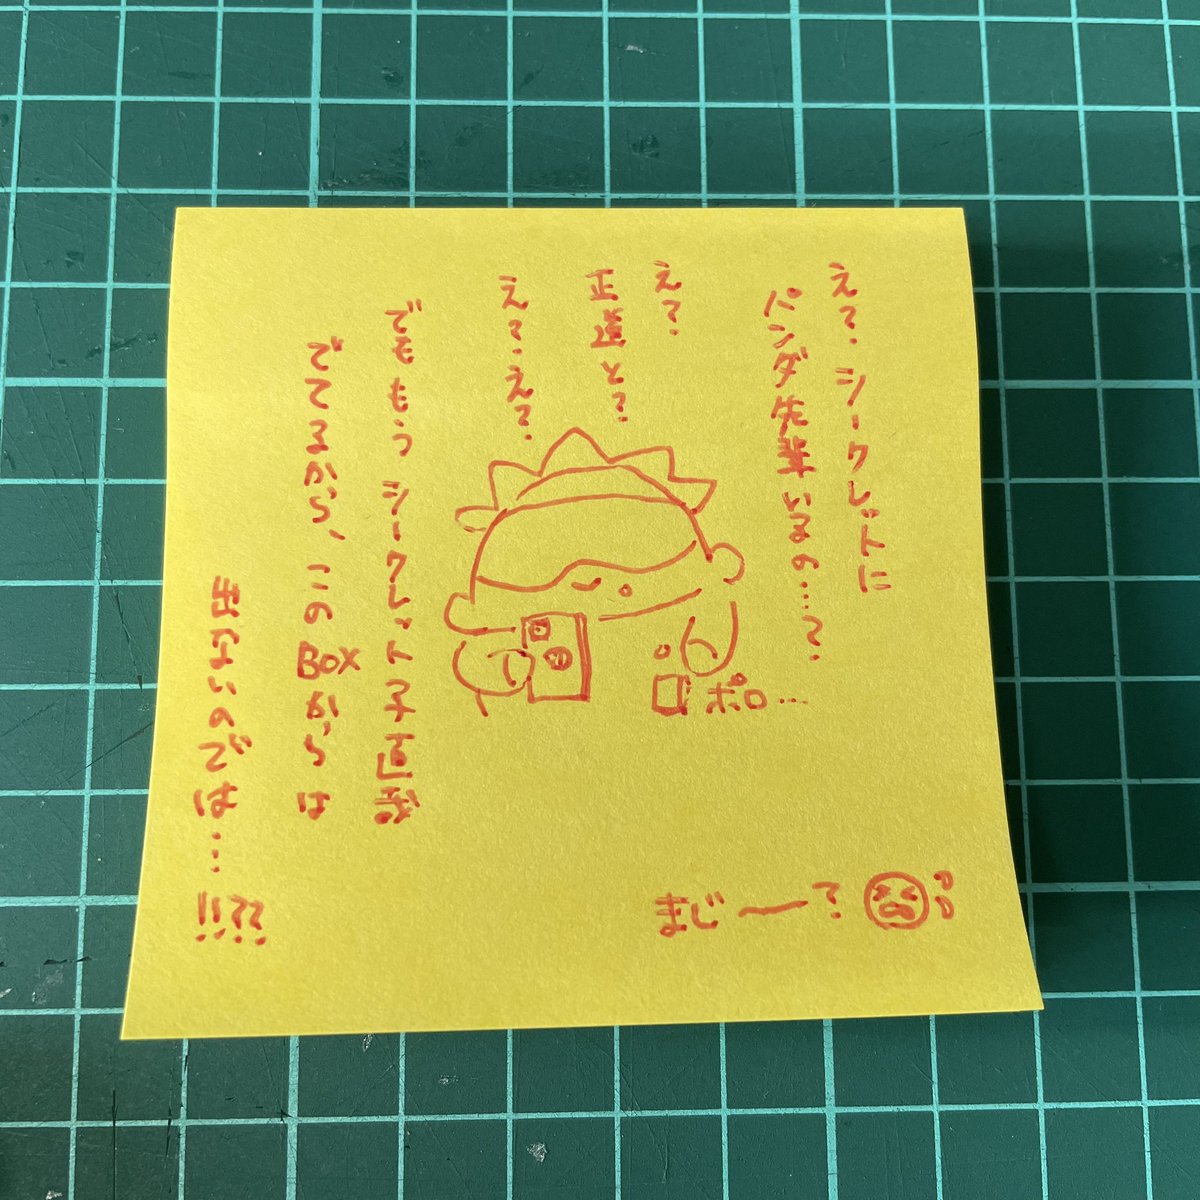 え?シークレットに
パンダ先輩いるの…?
え?
正道と?
え?え?
でももうシークレット子直哉
でてるから、このBOXからは
出ないのでは…!!??
ポロ…
まじ〜?